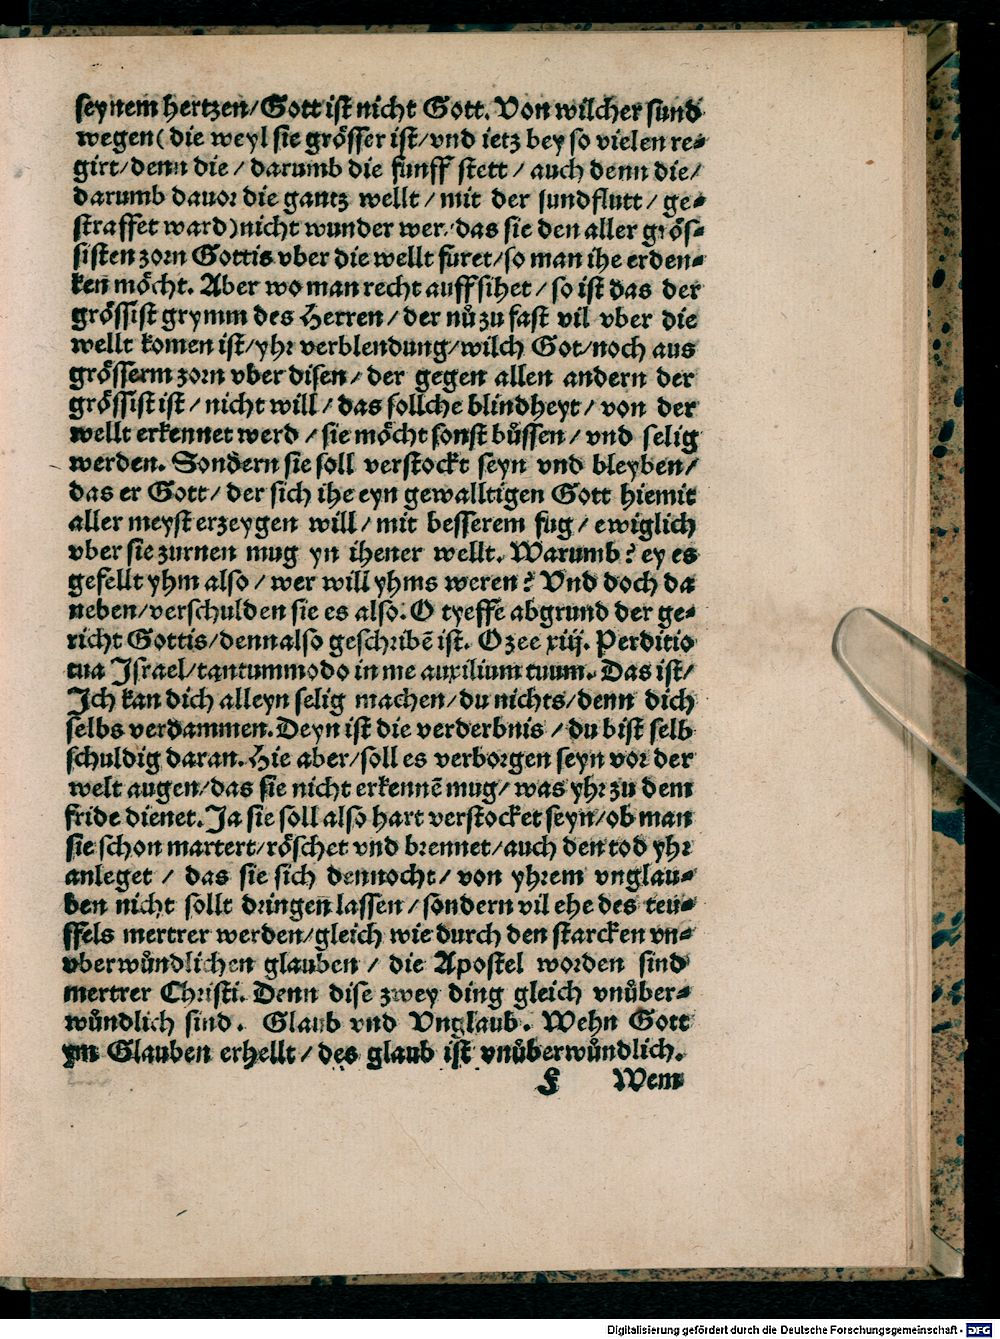 seynem hertzen/Gott ist nicht Gott. Von wilcher sund
wegen(die weyl sie grösser ist/vnd ietz bey so vielen re⸗
girt/denn die/darumb die funff stett/auch denn die/
darumb dauor die gantz wellt/mit der sundflutt/ge⸗
straffet ward)nicht wunder wer/das sie den aller grös⸗
sisten zorn Gottis vber die wellt füret/so man ihe erden⸗
ken möcht. Aber wo man recht auffsihet/so ist das der
grössist grymm des Herren/der nů zu fast vil vber die
wellt komen ist/yhr verblendung/wilch Got/noch aus
grösserm zorn vber disen/der gegen allen andern der
grössist ist/nicht will/das sollche blindheyt/von der
wellt erkennet werd/sie möcht sonst bůssen/vnd selig
werden. Sondern sie soll verstockt seyn vnd bleyben/
das er Gott/der sich ihe eyn gewalltigen Gott hiemit
aller meyst erzeygen will/mit besserem fug/ewiglich
vber sie zurnen mug yn ihener wellt. Warumb? ey es
gefellt yhm also/wer will yhms weren? Vnd doch da
neben/verschulden sie es also. O tyeffe abgrund der ge⸗
richt Gottis/denn also geschribē ist. Ozee xiij. Perditio
tua Israel/tantummodo in me auxilium tuum. Das ist/
Ich kan dich alleyn selig machen/du nichts/denn dich
selbs verdammen. Deyn ist die verderbnis/du bist selb
schuldig daran. Hie aber/soll es verborgen seyn vor der
welt augen/das sie nicht erkennē mug/was yhr zu dem
fride dienet. Ja sie soll also hart verstocket seyn/ob man
sie schon martert/röschet vnd brennet/auch den tod yhr
anleget/das sie sich dennocht/von yhrem vnglau⸗
ben nicht sollt dringen lassen/sondern vil ehe des teu⸗
ffels mertrer werden/gleich wie durch den starcken vn⸗
vberwůndlichen glauben/die Apostel worden sind
mertrer Christi. Denn dise zwey ding gleich vnůber⸗
wůndlich sind. Glaub vnd Vnglaub. Wehn Gott
ym Glauben erhellt/des glaub ist vnůberwůndlich.
Wem
Digitalisierung gefördert durch die Deutsche Forschungsgemeinschaft - DFG